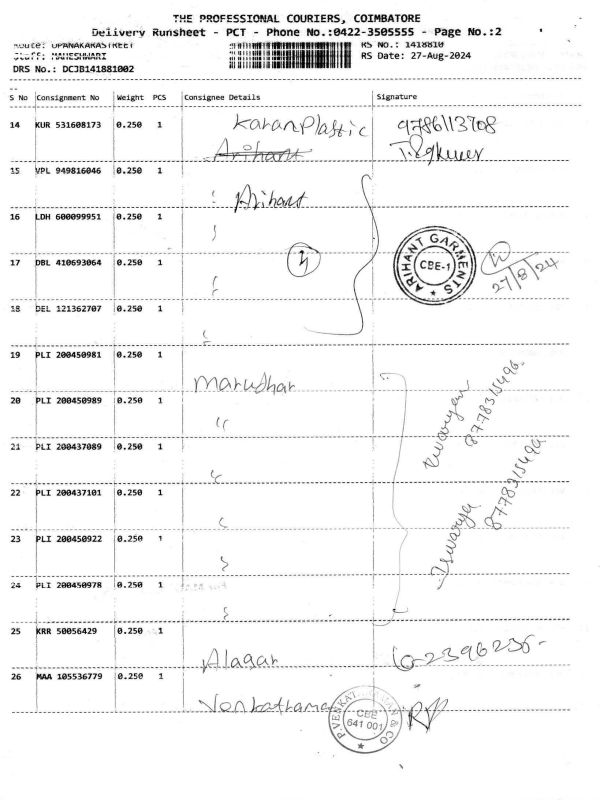 THE PROFESSIONAL COURIERS, COIMBATORE
Delivery Runsheet - PCT - Phone No.:0422-3505555 - Page No.:2
Route: OPANAKARASTREET RS No.: 1418810
Staff: MAHESHWARI RS Date: 27-Aug-2024
DRS No.: DCJB141881002
S No Consignment No Weight PCS Consignee Details Signature
14 KUR 531608173 0.250 1 Karan Plastic 9786113708
Arihant
15 VPL 949816046 0.250 1
Arihant
16 LDH 600099951 0.250 1
17 DBL 410693064 0.250 1
ARIHANT GARMENTS
CBE-1
27/8/24
18 DEL 121362707 0.250 1
19 PLI 200450981 0.250 1
Marudhar
20 PLI 200450989 0.250 1
8778315496
21 PLI 200437089 0.250 1
22 PLI 200437101 0.250 1
Iswarya
8778315496
23 PLI 200450922 0.250 1
24 PLI 200450978 0.250 1
25 KRR 50056429 0.250 1
Alagar
26 MAA 105536779 0.250 1
Venkatraman
P.VENKATRAMAN & CO
CBE
641 001